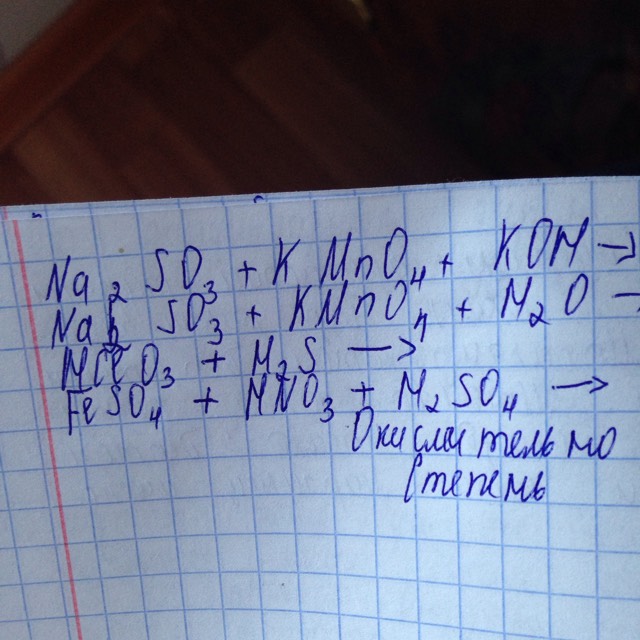 Na₂ SO₃ + K MnO₄ + KOH →
Na₂ SO₃ + KMnO₄ + H₂O →
HClO₃ + H₂S →
FeSO₄ + HNO₃ + H₂SO₄ →
Окислительно
Степень